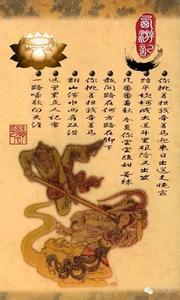 西游记
你挑着担我牵着马迎来日出送走晚霞
踏平坎坷成大道斗罢艰险又出发
番番春秋冬夏酸甜苦辣
敢问路在何方路在脚下
你挑着担我牵着马
翻山涉水两肩
一路豪歌向天涯